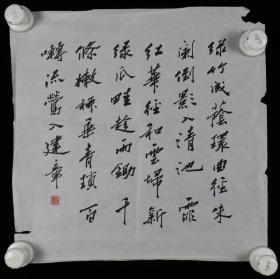 绿竹成蔭環曲径朱
阑倒影入清池霏
红華径和雲埽新
绿瓜畦趁雨鋤千
條嫩柳垂青瑣百
囀流鶯入建章